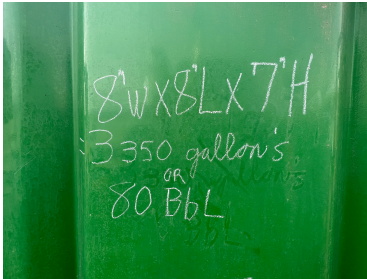 8"WX8"LX7"H
3350 gallon's
OR
80 BbL